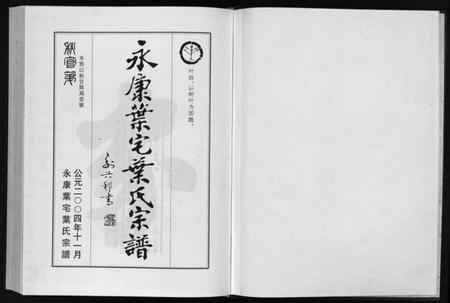 叶姓，以树叶为图腾。
永康葉宅葉氏宗譜
秋官第
本族以秋官第爲堂號
公元二〇〇四年十一月
永康葉宅葉氏宗譜